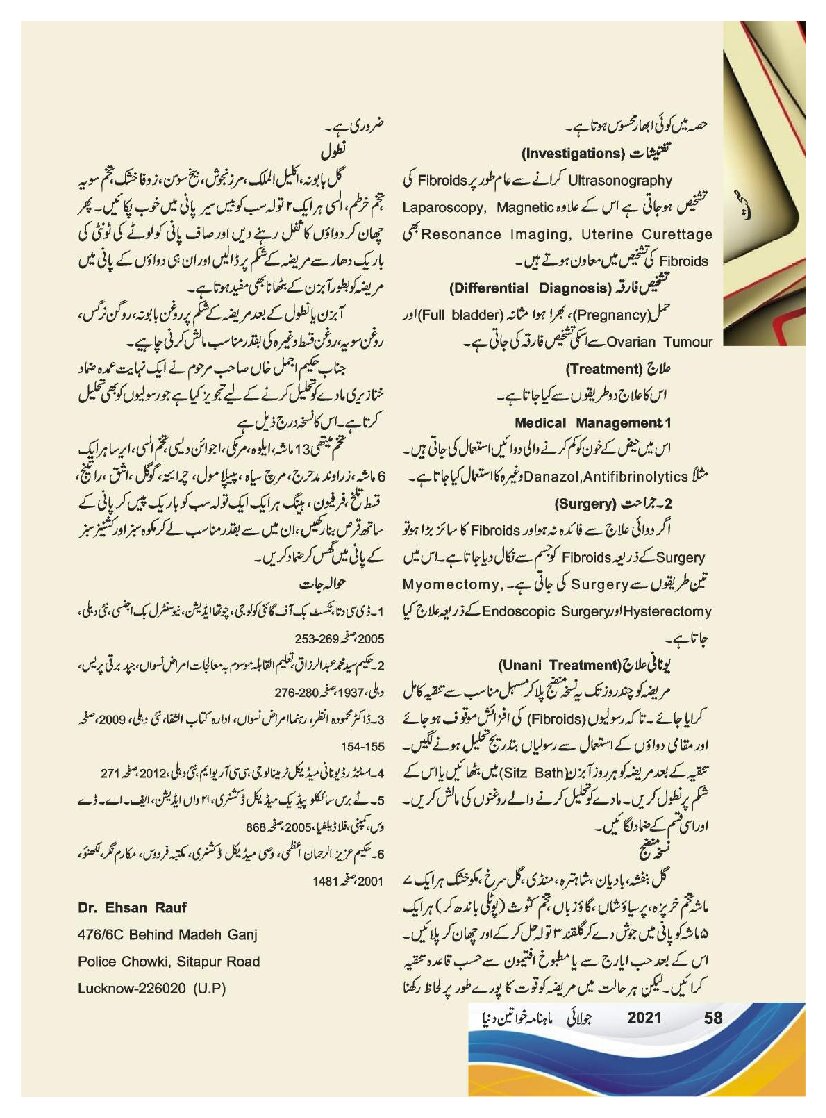 حصہ میں کوئی ابھار محسوس ہوتا ہے۔
تفتیشات (Investigations)
Ultrasonography کرانے سے عام طور پر Fibroids کی
تشخیص ہوجاتی ہے اس کے علاوہ Laparoscopy, Magnetic
Resonance Imaging, Uterine Curettage بھی
Fibroids کی تشخیص میں معاون ہوتے ہیں۔
تشخیص فارقہ (Differential Diagnosis)
حمل (Pregnancy)، بھرا ہوا مثانہ (Full bladder) اور
Ovarian Tumour سے اسکی تشخیص فارقہ کی جاتی ہے۔
علاج (Treatment)
اس کا علاج دو طریقوں سے کیا جاتا ہے۔
Medical Management 1
اس میں حیض کے خون کو کم کرنے والی دوائیں استعمال کی جاتی ہیں۔
مثلاً Danazol,Antifibrinolytics وغیرہ کا استعمال کیا جاتا ہے۔
2۔ جراحت (Surgery)
اگر دوائی علاج سے فائدہ نہ ہو اور Fibroids کا سائز بڑا ہو تو
Surgery کے ذریعہ Fibroids کو جسم سے نکال دیا جاتا ہے۔ اس میں
تین طریقوں سے Surgery کی جاتی ہے۔ Myomectomy,
Hysterectomy اور Endoscopic Surgery کے ذریعہ علاج کیا
جاتا ہے۔
یونانی علاج (Unani Treatment)
مریضہ کو چند روز تک یہ نسخہ منضج پلا کر مسہل مناسب سے تنقیہ کامل
کرایا جائے۔ تاکہ رسولیوں (Fibroids) کی افزائش موقوف ہو جائے
اور مقامی دواؤں کے استعمال سے رسولیاں بتدریج تحلیل ہونے لگیں۔
تنقیہ کے بعد مریضہ کو ہر روز آبزن (Sitz Bath) میں بٹھائیں یا اس کے
شکم پر نطول کریں۔ مادے کو تحلیل کرنے والے روغنوں کی مالش کریں۔
اور اسی قسم کے ضماد لگائیں۔
نسخہ منضج
گل بنفشہ، بادیان، شاہترہ، منڈی، گل سرخ، مکو خشک ہر ایک ۷
ماشہ تخم خرپزہ، پرسیاؤشاں، گاؤزباں، تخم کثوث (پوٹلی باندھ کر) ہر ایک
۵ ماشہ کو پانی میں جوش دے کر گلقند ۳ تولہ حل کر کے اور چھان کر پلائیں۔
اس کے بعد حب ایارج سے یا مطبوخ افتیمون سے حسب قاعدہ تنقیہ
کرائیں۔ لیکن ہر حالت میں مریضہ کو قوت کا پورے طور پر لحاظ رکھنا
ضروری ہے۔
نطول
گل بابونہ، اکلیل الملک، مرزنجوش، بیخ سوسن، زوفا خشک، تخم سویہ
تخم خرطم، السی ہر ایک ۲ تولہ سب کو بیس سیر پانی میں خوب پکائیں۔ پھر
چھان کر دواؤں کا ثفل رہنے دیں اور صاف پانی کو لوٹے کی ٹونٹی کی
باریک دھار سے مریضہ کے شکم پر ڈالیں اور ان ہی دواؤں کے پانی میں
مریضہ کو بطور آبزن کے بٹھانا بھی مفید ہوتا ہے۔
آبزن یا نطول کے بعد مریضہ کے شکم پر روغن بابونہ، روگن نرگس،
روغن سویہ، روغن قسط وغیرہ کی بقدر مناسب مالش کرنی چاہیے۔
جناب حکیم اجمل خاں صاحب مرحوم نے ایک نہایت عمدہ ضماد
خنازیری مادے کو تحلیل کرنے کے لیے تجویز کیا ہے جو رسولیوں کو بھی تحلیل
کرتا ہے۔ اس کا نسخہ درج ذیل ہے
تخم میتھی 13 ماشہ، ایلوہ، مرمکی، اجوائن دیسی، تخم السی، ایرسا ہر ایک
6 ماشہ، زراوند مدحرج، مرچ سیاہ، پیپلا مول، چرائتہ، گوگل، اشق، راتینج،
قسط تلخ، فرفیون، ہینگ ہر ایک ایک تولہ سب کو باریک پیس کر پانی کے
ساتھ قرص بنا رکھیں، ان میں سے بقدر مناسب لے کر مکوہ سبز اور کشنیز سبز
کے پانی میں گھس کر ضماد کریں۔
حوالہ جات
1۔ ڈی سی دتا، ٹکسٹ بک آف گائنی کولوجی، چوتھا ایڈیشن، نیو سنٹرل بک ایجنسی، نئی دہلی،
2005، صفحہ 253-269
2۔ حکیم سید محمد عبدالرزاق، تعلیم القابلہ موسوم بہ معالجات امراض نسواں، جید برقی پریس،
دہلی، 1937، صفحہ 276-280
3۔ ڈاکٹر محمودہ انظر، رہنما امراض نسواں، ادارہ کتاب الشفا، نئی دہلی، 2009، صفحہ
154-155
4۔ اسٹنڈرڈ یونانی میڈیکل ٹرمینالوجی، سی سی آر یو ایم نئی دہلی، 2012، صفحہ 271
5۔ ٹے برس سائکلو پیڈیک میڈیکل ڈکشنری، ۲۱ واں ایڈیشن، ایف۔ اے۔ ڈے
وس، کمپنی، فلاڈیلفیا، 2005، صفحہ 868
6۔ حکیم عزیز الرحمان اعظمی، وصی میڈیکل ڈکشنری، مکتبہ فردوس، مکارم نگر، لکھنؤ،
2001، صفحہ 1481
Dr. Ehsan Rauf
476/6C Behind Madeh Ganj
Police Chowki, Sitapur Road
Lucknow-226020 (U.P)
صحت
ماہنامہ خواتین دنیا جولائی 2021 58